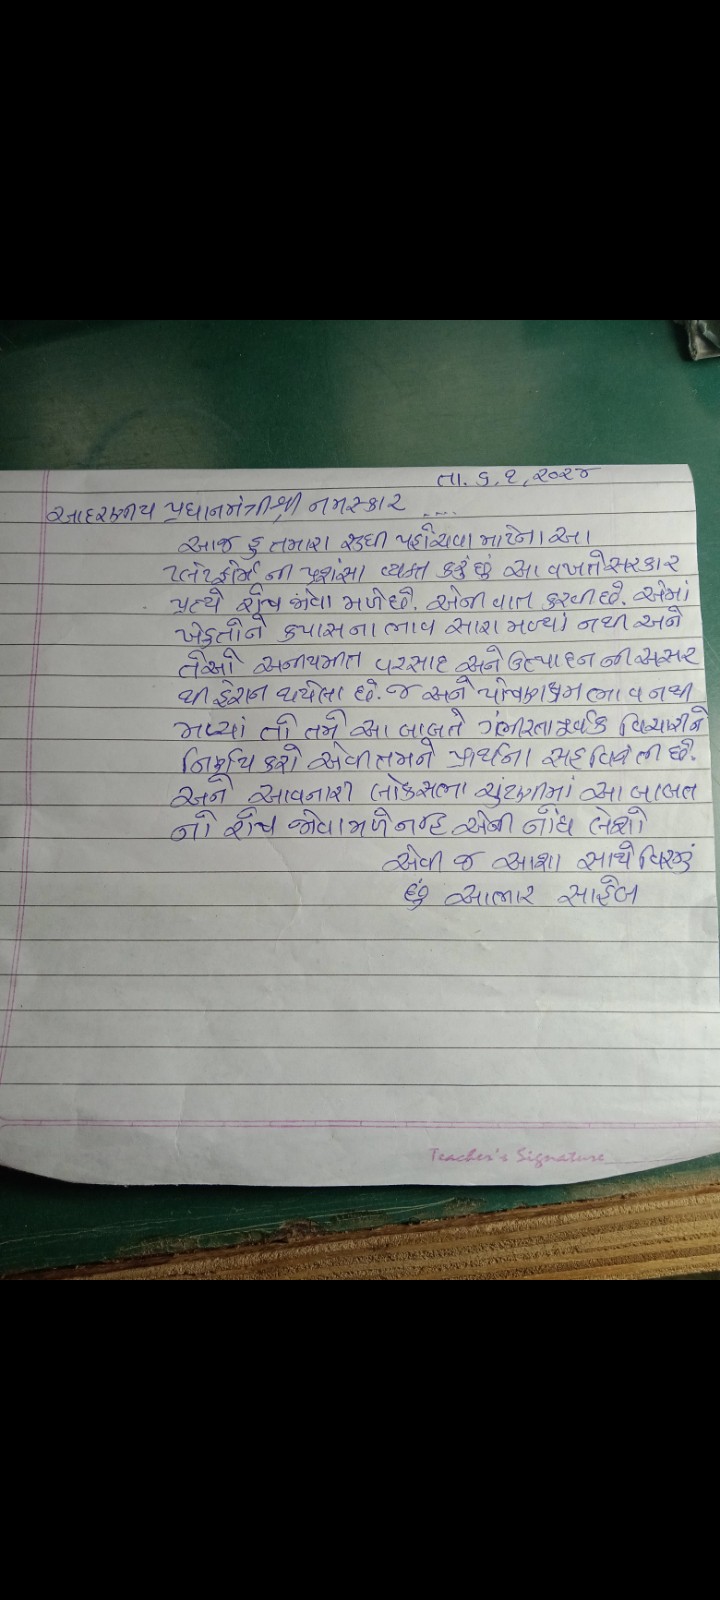 તા. ૬,૧,૨૦૨૪
આદરણીય પ્રધાનમંત્રીશ્રી નમસ્કાર ....
આજ હુ તમારા સુધી પહોંચવા માટેના આ
પ્લેટફોર્મ ની પ્રશંસા વ્યક્ત કરું છું આ વખતે સરકાર
પ્રત્યે રોષ જોવા મળે છે. એની વાત કરવી છે. એમાં
ખેડુતોને કપાસના ભાવ સારા મળ્યાં નથી અને
તેઓ અનીયમીત વરસાદ અને ઉત્પાદન ની અસર
થી હેરાન થયેલા છે. જ અને પોષણક્ષમ ભાવ નથી
મળ્યાં તો તમે આ બાબતે ગંભીરતાપૂર્વક વિચારીને
નિર્ણય કરો એવી તમને પ્રાર્થના સહ વિનંતી છે.
અને આવનારી લોકસભા ચુંટણીમાં આ બાબત
નો રોષ જોવા મળે નહિ એની નોંધ લેશો
એવી જ આશા સાથે વિરમું
છું આભાર સાહેબ
Teacher's Signature